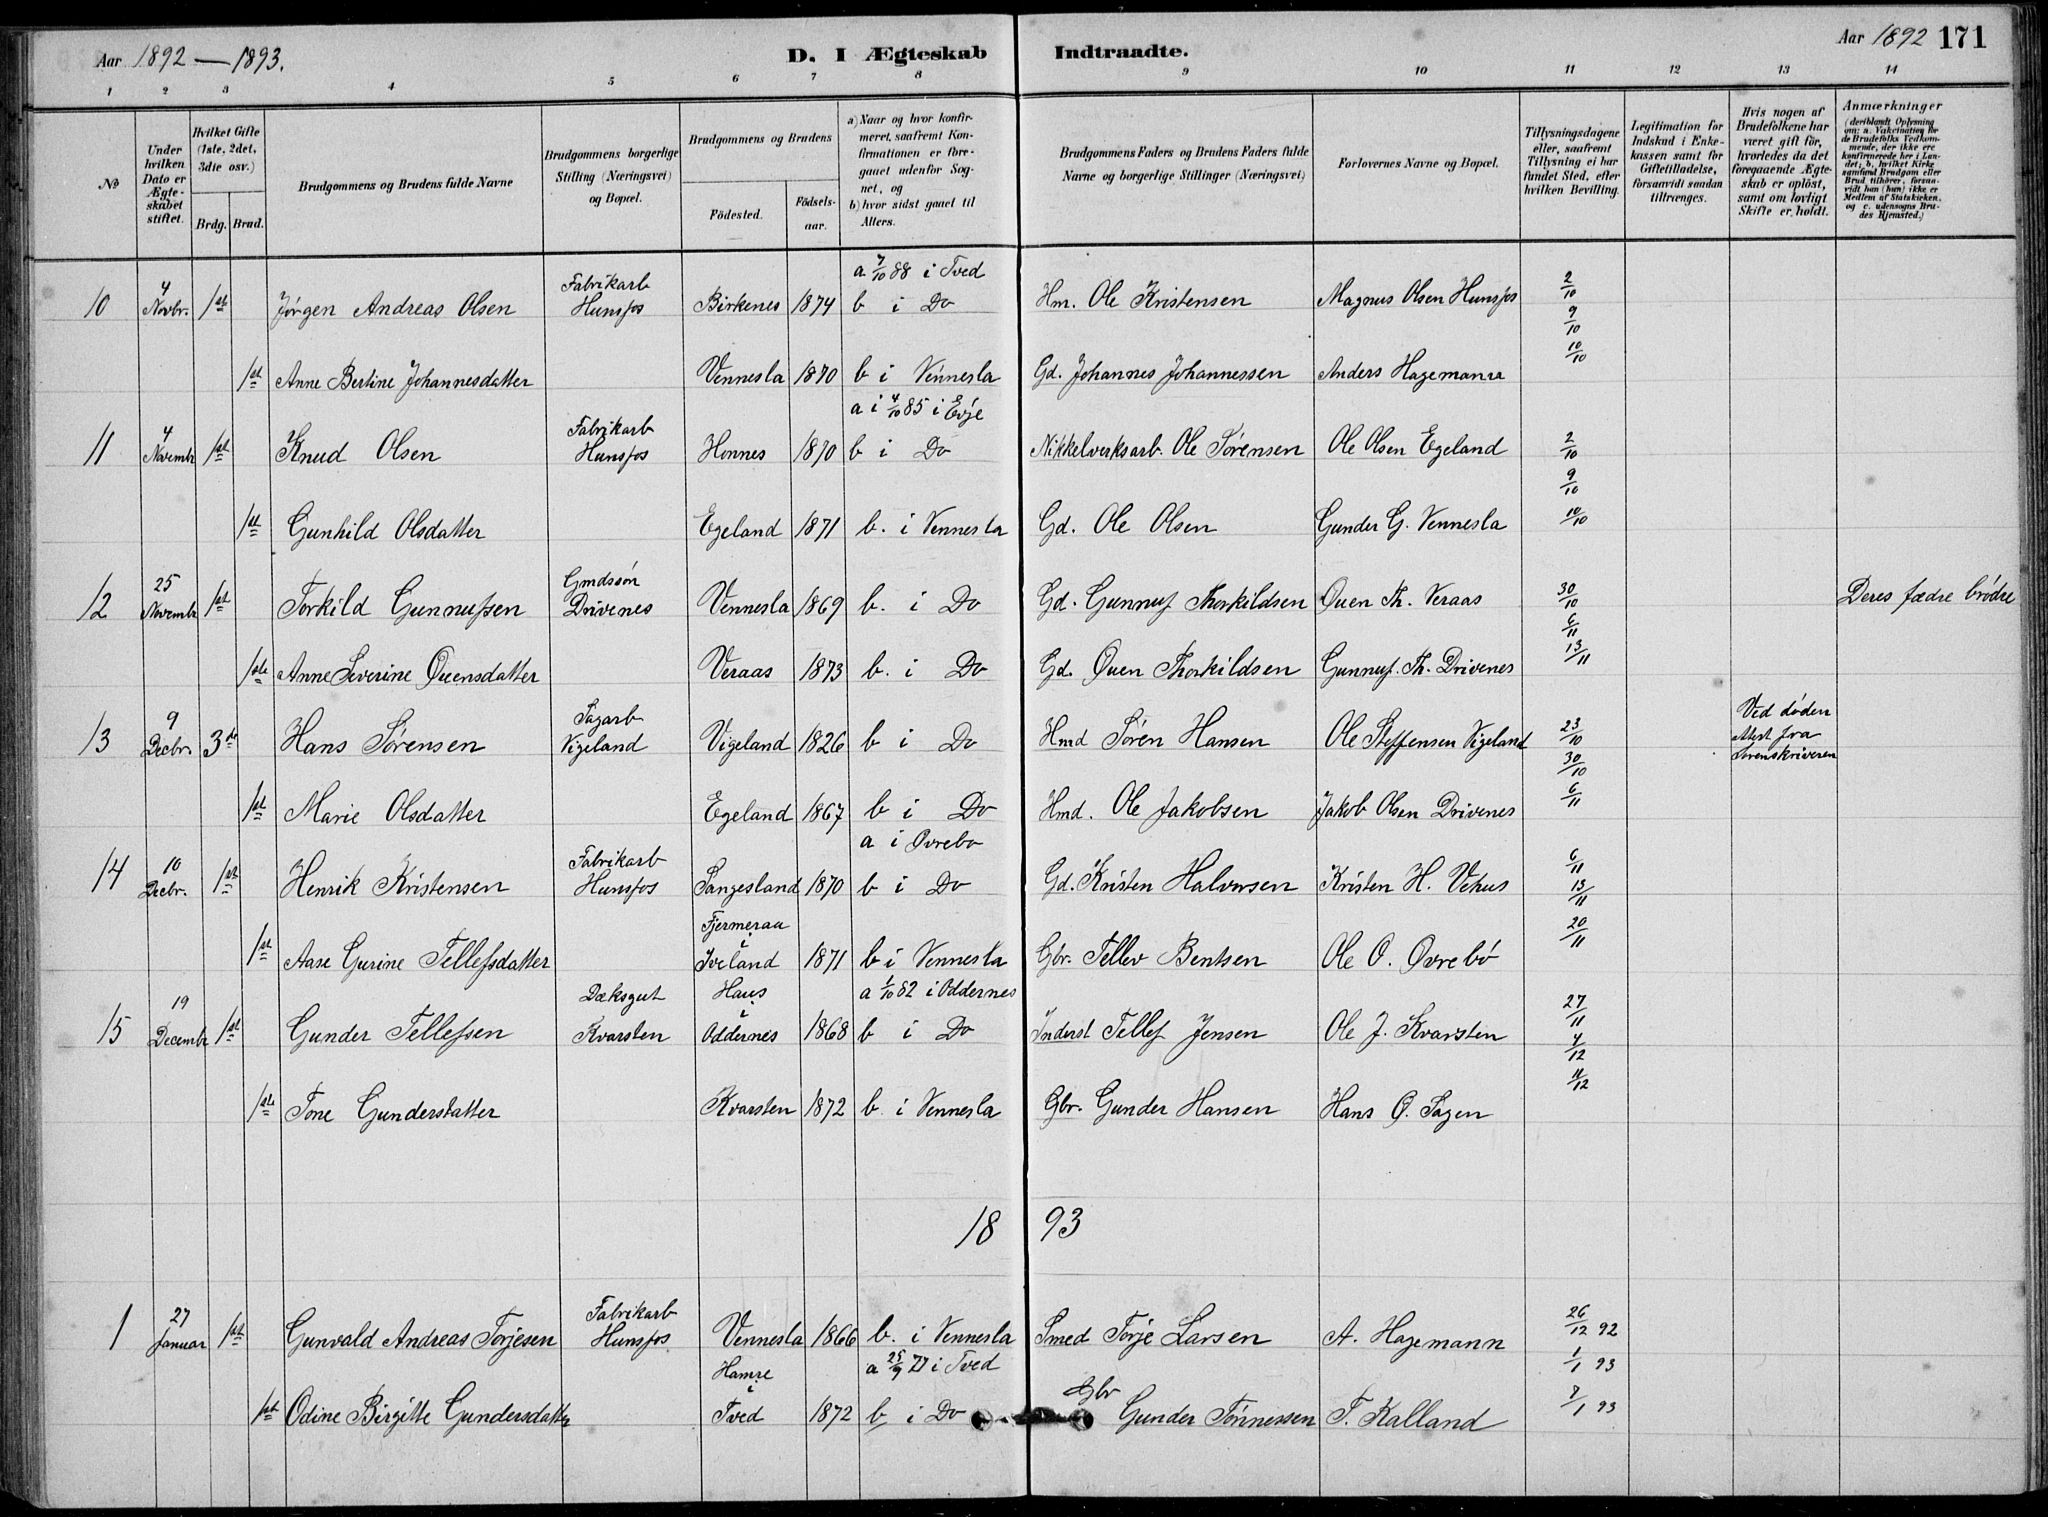 Aar 1892 — 1893.
D. I Ægteskab Indtraadte.
Aar 1892 171
1 2 3 4 5 6 7 8 9 10 11 12 13 14
№
Under hvilken Dato er Ægteskabet stiftet.
Hvilket Gifte (1ste, 2det, 3die osv.)
Brdg. Brud.
Brudgommens og Brudens fulde Navne
Brudgommens borgerlige Stilling (Næringsvei) og Bopæl.
Brudgommens og Brudens
Födested.
Födselsaar.
a) Naar og hvor konfirmeret, saafremt Konfirmationen er foregaaet udenfor Sognet, og
b) hvor sidst gaaet til Alters.
Brudgommens Faders og Brudens Faders fulde Navne og borgerlige Stillinger (Næringsvei)
Forlovernes Navne og Bopæl.
Tillysningsdagene eller, saafremt Tillysning ei har fundet Sted, efter hvilken Bevilling.
Legitimation for Indskud i Enkekassen samt for Giftetilladelse, forsaavidt saadan tiltrænges.
Hvis nogen af Brudefolkene har været gift før, hvorledes da det foregaaende Ægteskab er oplöst, samt om lovligt Skifte er holdt.
Anmærkninger (deriblandt Oplysning om: a. Vakcination for de Brudefolks Vedkommende, der ikke ere konfirmerede her i Landet; b. hvilket Kirkesamfund Brudgom eller Brud tilhörer, forsaavidt han (hun) ikke er Medlem af Statskirken, og c. udensogns Brudes Hjemsted.)
10 4 Novbr. 1ste Jørgen Andreas Olsen Fabrikarb Hunsfos Birkenes 1874 a 7/10 88 i Tved b i Do Hm. Ole Kristensen Magnus Olsen Hunsfos 2/10 9/10
1ste Anne Bertine Johannesdatter Vennesla 1870 b i Vennesla Gd. Johannes Johannessen Anders Hagemann 10/10
11 4 Novembr 1ste Knud Olsen Fabrikarb Hunsfos Honnes 1870 a i 4/10 85 i Evje b i Do Nikkelverksarb. Ole Sørensen Ole Olsen Egeland 2/10 9/10
1ste Gunhild Olsdatter Egeland 1871 b. i Vennesla Gd. Ole Olsen Gunder G. Vennesla 10/10
12 25 Novembr 1ste Torkild Gunnufsen Gmdssøn Drivenes Vennesla 1869 b. i Do Gd. Gunnuf Thorkildsen Øuen Th. Veraas 30/10 6/11 Deres fædre brødre
1ste Anne Severine Øuensdatter Veraas 1873 b. i Do Gd. Øuen Thorkildsen Gunnuf. Th. Drivenes 13/11
13 9 Decbr. 3de Hans Sørensen Sagarb Vigeland Vigeland 1826 b i Do Hmd Søren Hansen Ole Steffensen Vigeland 23/10 30/10 Ved døden Attest fra Sorenskriveren
1ste Marie Olsdatter Egeland 1867 b i Do Hmd. Ole Jakobsen Jakob Olsen Drivenes 6/11
14 10 Decbr. 1ste Henrik Kristensen Fabrikarb Hunsfos Sangesland 1870 a i Øvrebo b i Do Gd. Kristen Halvorsen Kristen H. Vehus 6/11 13/11
1ste Aase Gurine Tellefsdatter Fjermeraa i Iveland 1871 b i Vennesla Gbr. Tellev Bentsen Ole O. Øvrebø 20/11
15 19 Decembr 1ste Gunder Tellefsen Dæksgut Kvarsten Haus i Oddernes 1868 a 1/10 82 i Oddernes b i Do Inderst Tellef Jensen Ole J. Kvarsten 27/11 4/12
1ste Tone Gunderstatter Kvarsten 1872 b. i Vennesla Gbr. Gunder Hansen Hans O. Sagen 11/12
18 93
1 27 Januar 1ste Gunvald Andreas Torjesen Fabrikarb Hunsfos Vennesla 1866 b. i Vennesla Smed Torje Larsen A. Hagemann 26/12 92 1/1 93
1ste Odine Birgitte Gundersdatter Hamre i Tved 1872 a 25/9 77 i Tved b i Do Gbr Gunder Tønnessen T. Kalland 7/1 93